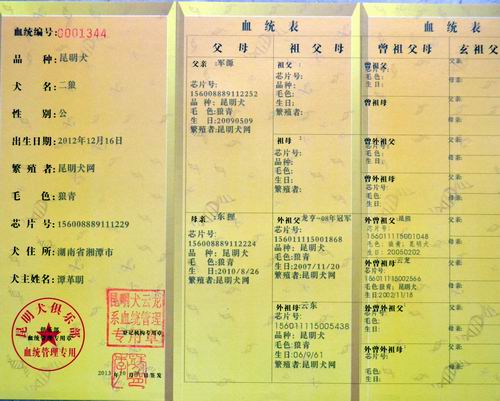 血统编号:0001344
品种:昆明犬
犬名:二狼
性别:公
出生日期:2012年12月16日
繁殖者:昆明犬网
毛色:狼青
芯片号:156008889111229
犬住所:湖南省湘潭市
犬主姓名:谭革明
昆明犬俱乐部
血统管理专用章
血统管理专用
昆明犬云龙
系血统管理
专用章
登记机构专用章
血统表
父母
父亲:军源
芯片号:
156008889112252
品种:昆明犬
毛色:狼青
生日:20090509
繁殖者:昆明犬网
母亲:东狸
芯片号:
156008889112224
品种:昆明犬
毛色:狼青
生日:2010/8/26
繁殖者:昆明犬网
祖父母
祖父:
芯片号:
品种:
毛色:
生日:
繁殖者:
祖母:
芯片号:
品种:
毛色:
生日:
繁殖者:
外祖父:龙亨-08年冠军
芯片号:
156011115001868
毛色:狼青
生日:2007/11/20
繁殖者:昆明犬网
外祖母:云东
芯片号:
156011115005438
毛色:狼青
生日:06/9/61
繁殖者:昆明犬网
血统表
曾祖父母
玄祖父
曾祖父:
芯片号:
毛色:
生日:
曾祖母:
曾外祖父:
芯片号:
毛色:
生日:
曾外祖母:
芯片号:
毛色:
生日:
外曾祖父:昆熊
芯片号:
156011115001048
毛色:狼青;昆明犬
生日:20050202
外曾祖母:云龙
芯片号:
156011115002566
毛色:狼青;昆明犬
生日:2002/11/18
外曾外祖父:
芯片号:
毛色:
生日:
外曾外祖母:
芯片号:
毛色:
生日:
父亲:
母亲:
父亲:
母亲:
父亲:
母亲:
父亲:
母亲:
父亲:
母亲:
父亲:
母亲:
父亲:
母亲:
父亲:
母亲: